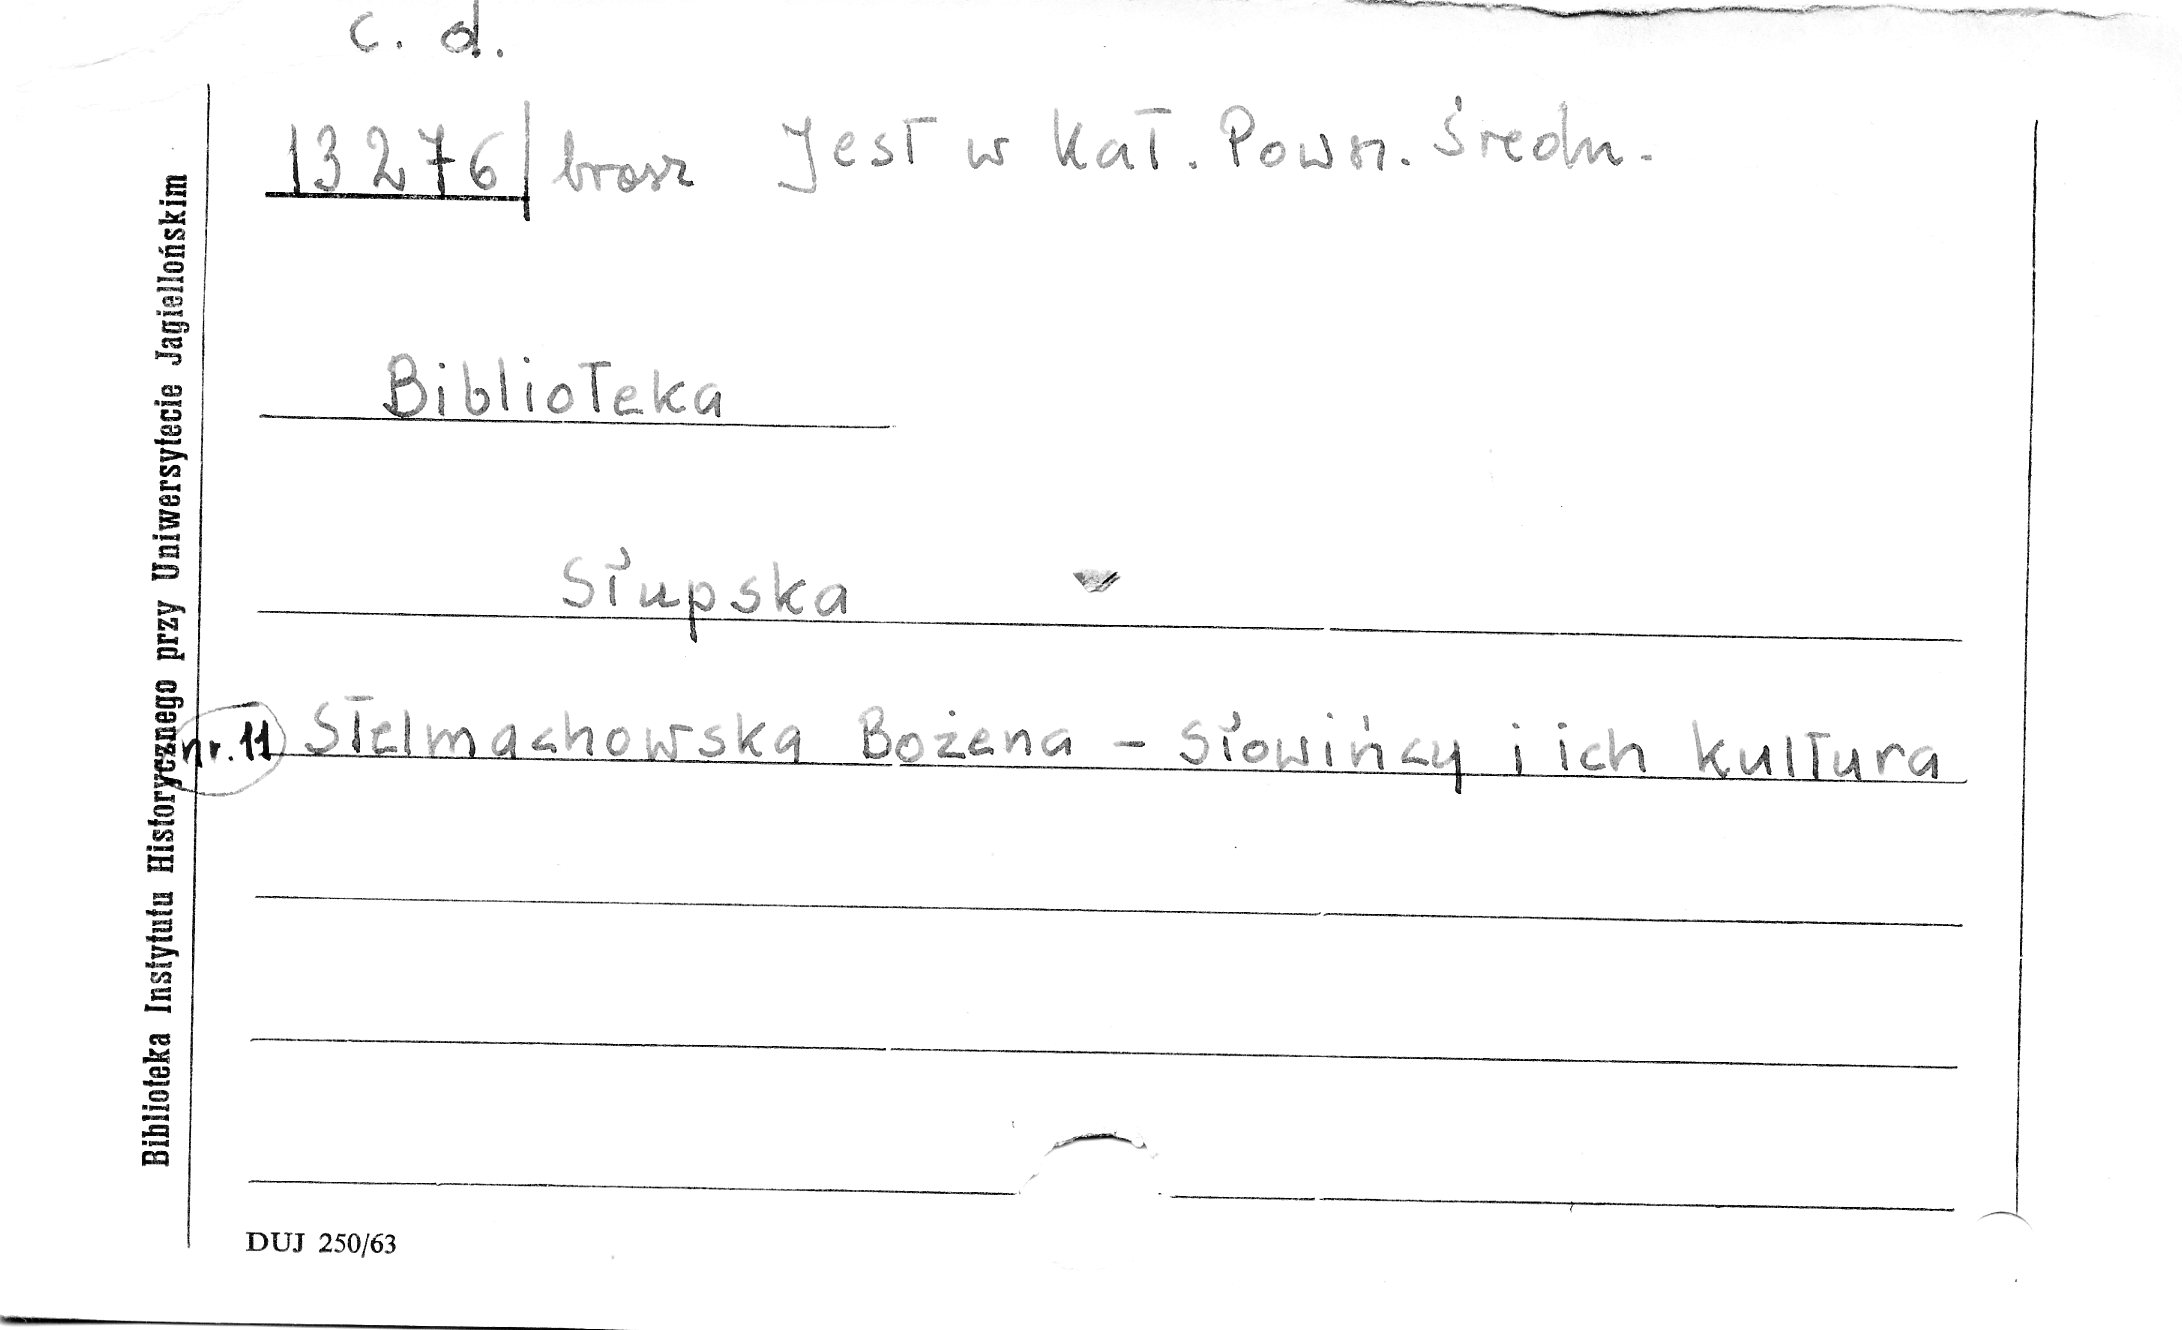 c. d.
13276 brosz Jest w Kat. Powsz. Średn.
Biblioteka
Słupska
nr. 11 Stelmachowska Bożena - Słowińcy i ich kultura
Biblioteka Instytutu Historycznego przy Uniwersytecie Jagiellońskim
DUJ 250/63